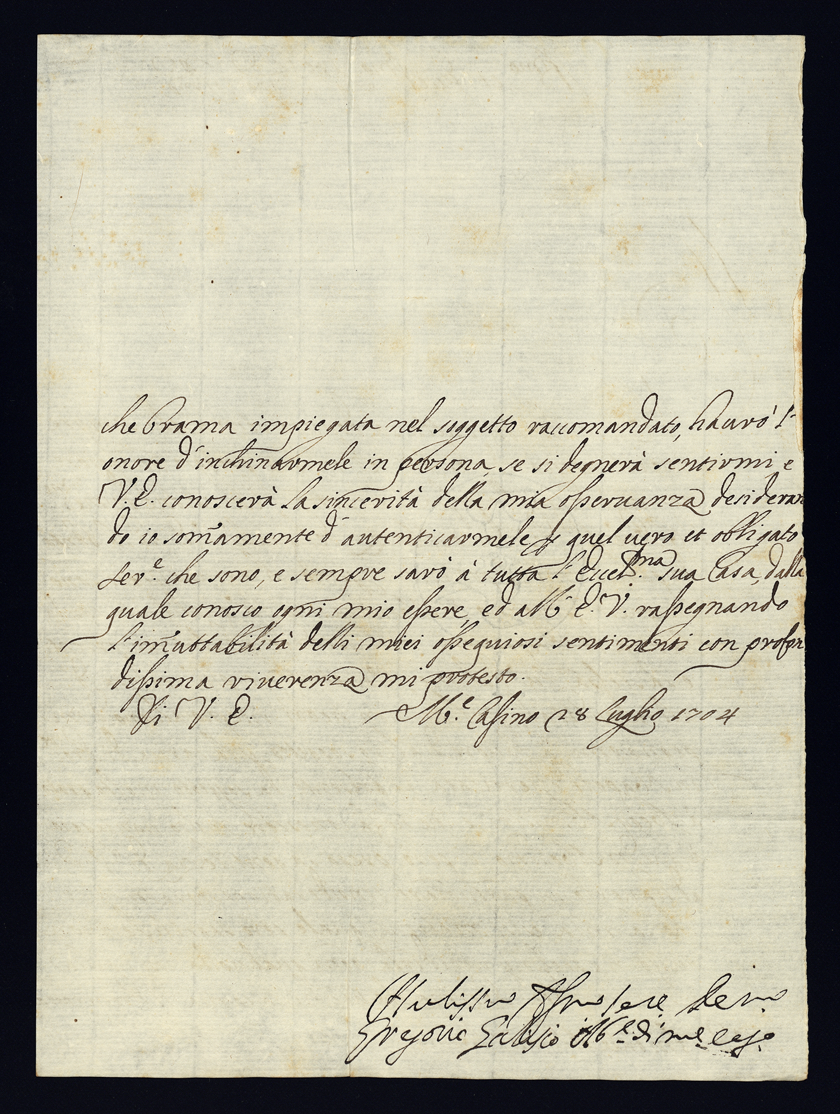 che brama impiegata nel soggetto raccomandato, haurò l'
onore d'inchinarmele in persona, se si degnerà sentirmi e
V. E. conoscerà la sincerità della mia osseruanza desideran
do io som̃amente d'autenticarmele quel uero et obligato
ser.e che sono, e sempre sarò à tutta l'Eccel.ma sua Casa, dalla
quale conosco ogni mio essere, ed à V.E. rassegnando
l'im̃utabilità delli miei osseguiosi sentimenti con profon
dissima riuerenza mi protesto.
Di V. E. M.e Casino 28 Luglio 1704
Gregorio